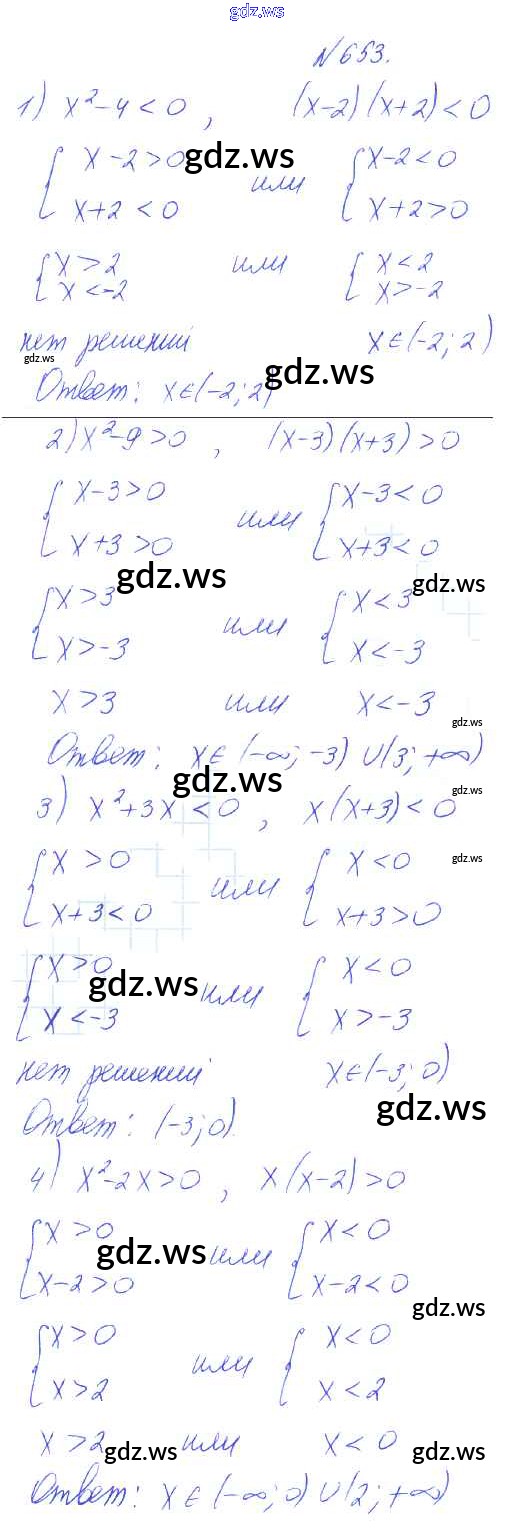 gdz.ws
№653.
1) x²-4<0, (x-2)(x+2)<0
{ x-2>0 gdz.ws или { x-2<0
x+2<0 x+2>0
{ x>2 или { x<2
x<-2 x>-2
нет решений x∈(-2;2)
gdz.ws
Ответ: x∈(-2;2) gdz.ws
2) x²-9>0, (x-3)(x+3)>0
{ x-3>0 или { x-3<0
x+3>0 x+3<0
gdz.ws gdz.ws
{ x>3 или { x<3
x>-3 x<-3
x>3 или x<-3
gdz.ws
Ответ: x∈(-∞;-3)∪(3;+∞)
gdz.ws gdz.ws
3) x²+3x<0, x(x+3)<0
{ x>0 или { x<0 gdz.ws
x+3<0 x+3>0
{ x>0 gdz.ws или { x<0
x<-3 x>-3
нет решений x∈(-3;0)
Ответ: (-3;0). gdz.ws
4) x²-2x>0, x(x-2)>0
{ x>0 gdz.ws или { x<0
x-2>0 x-2<0
gdz.ws
{ x>0 или { x<0
x>2 x<2
x>2 gdz.ws или x<0 gdz.ws
Ответ: x∈(-∞;0)∪(2;+∞)